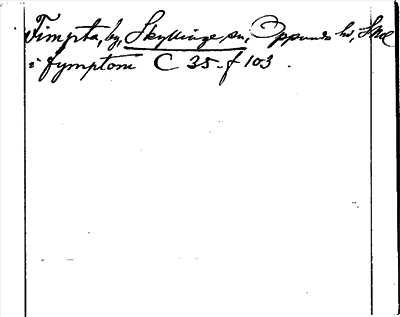 Fimpta, by, Skyllinge, sn, Oppunda hd, Skl
i fymptom C 35-f 103.